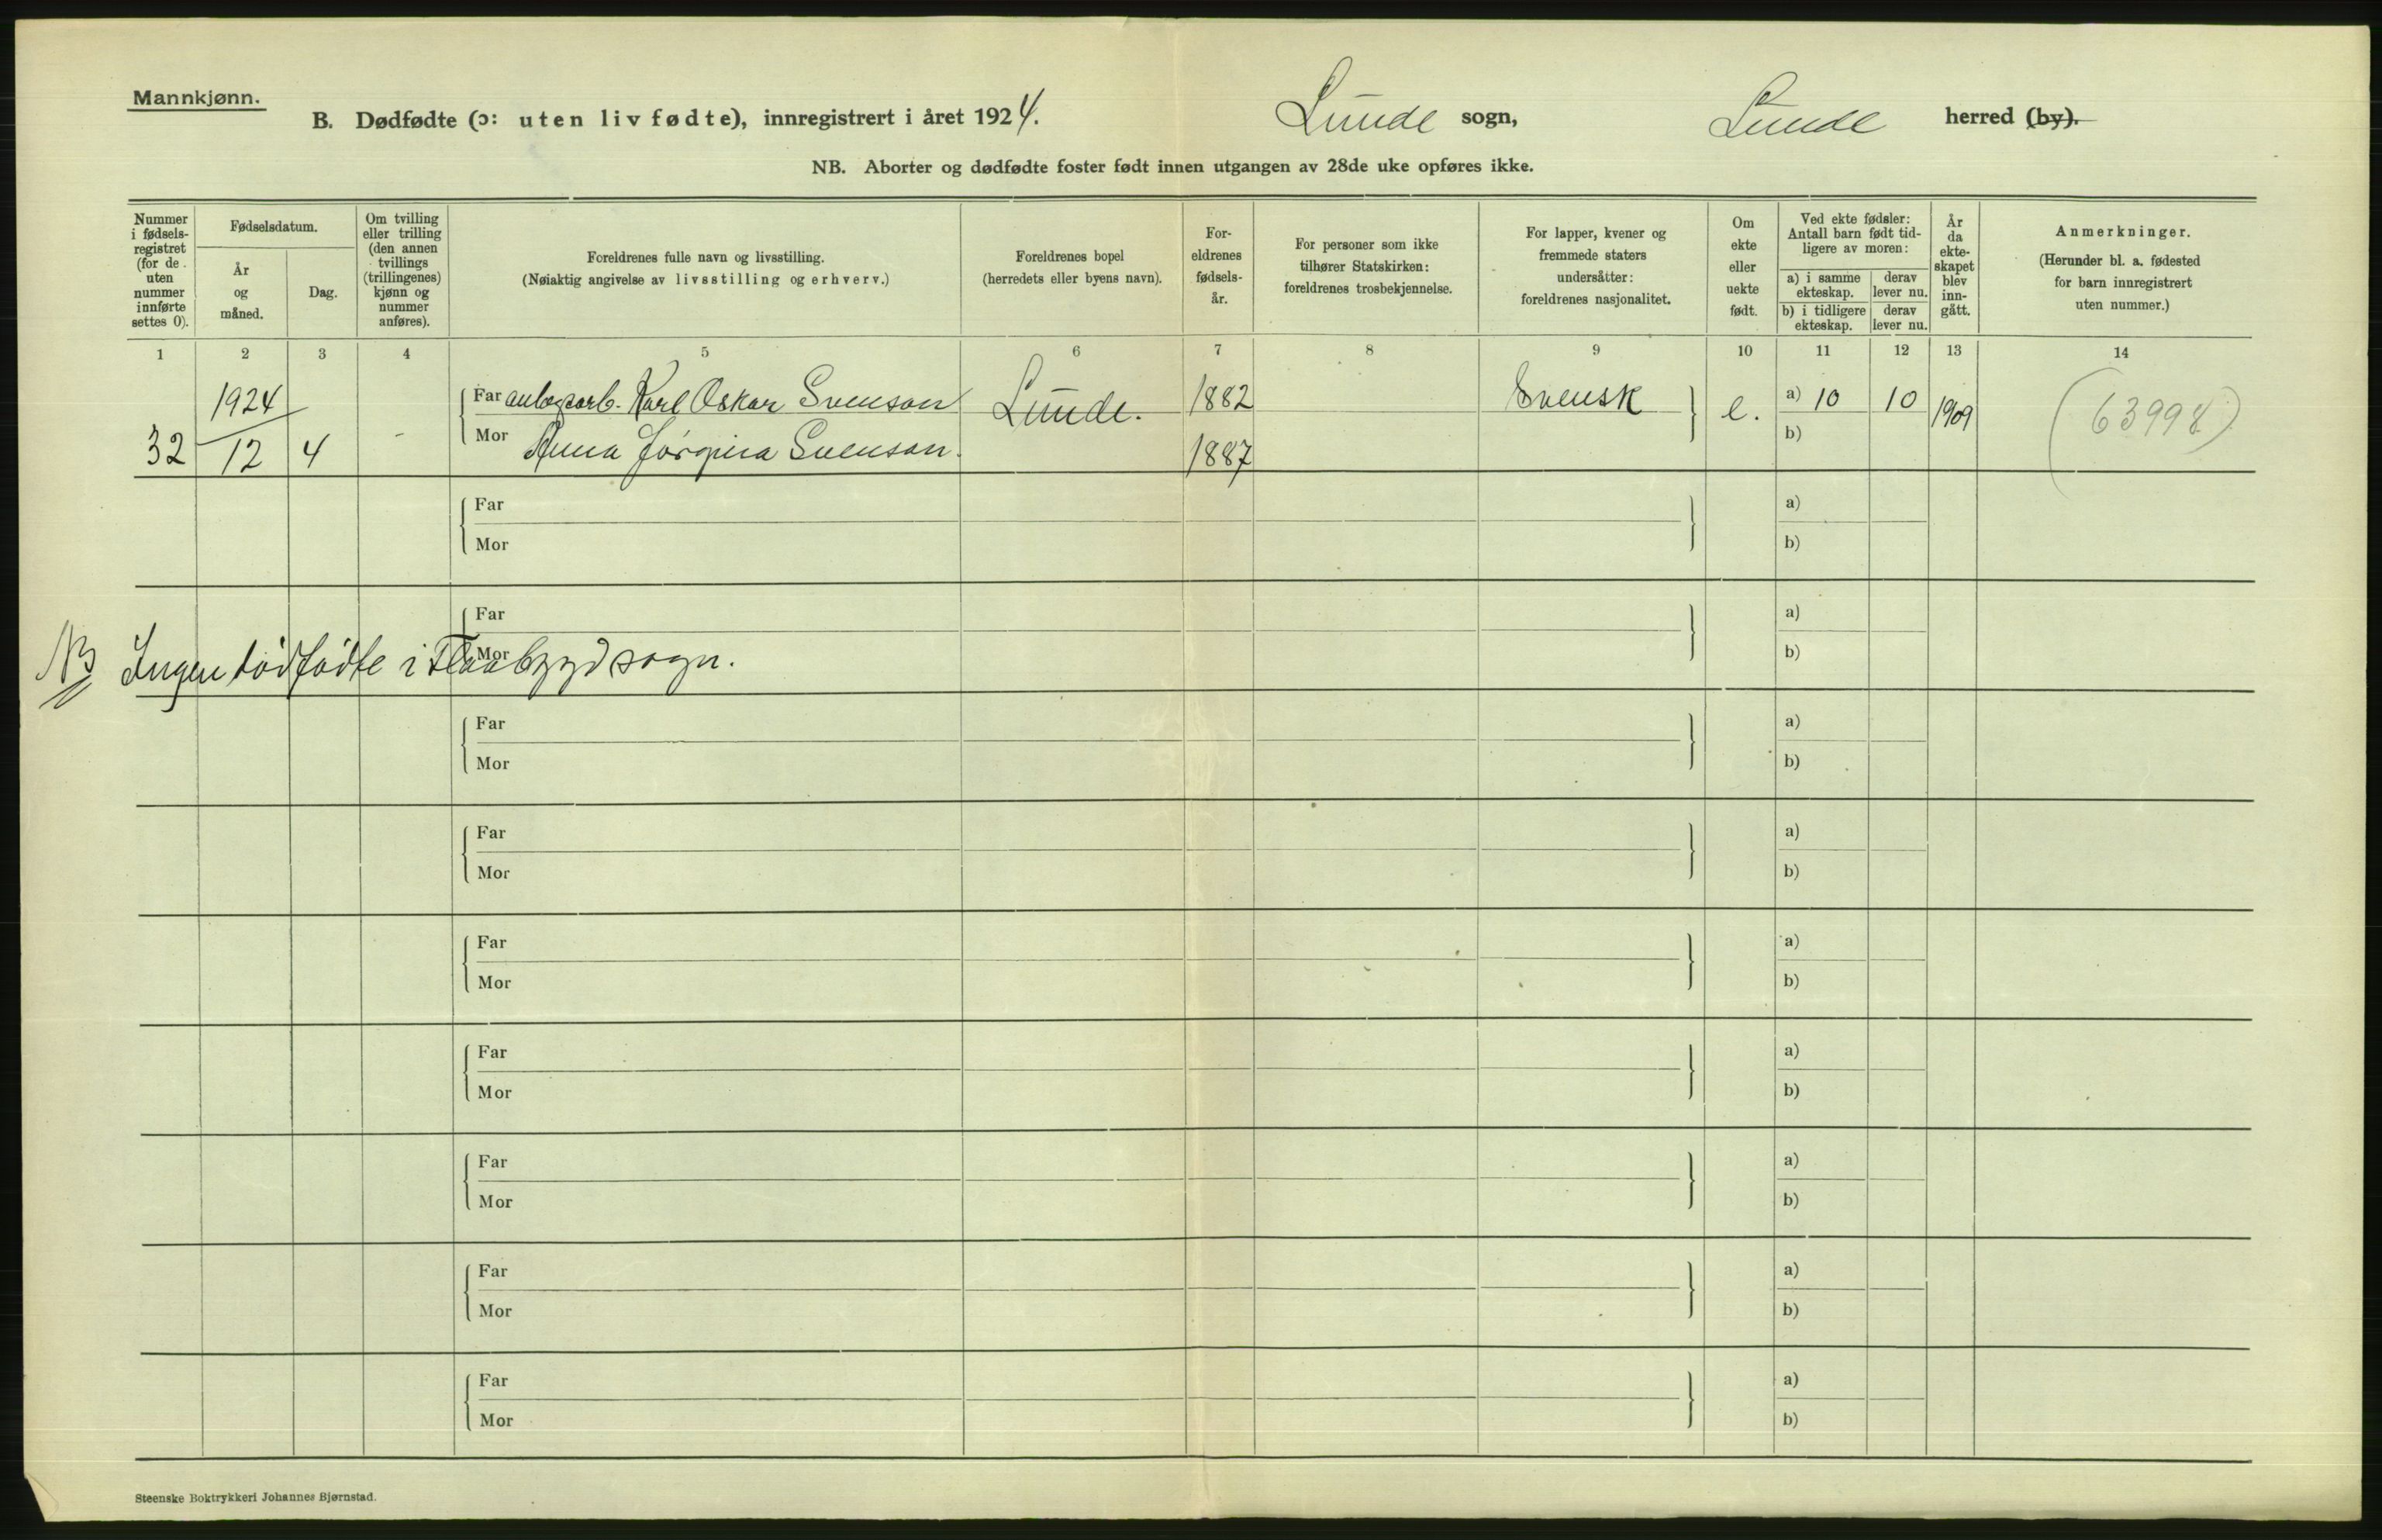 Mannkjønn.
B. Dødfødte (ɔ: uten liv fødte), innregistrert i året 1924. Lunde sogn, Lunde herred (by).
NB. Aborter og dødfødte foster født innen utgangen av 28de uke opføres ikke.
Nummer i fødsels-registret (for de uten nummer innførte settes 0).
Fødselsdatum.
År og måned.
Dag.
Om tvilling eller trilling (den annen tvillings (trillingenes) kjønn og nummer anføres).
Foreldrenes fulle navn og livsstilling.
(Nøiaktig angivelse av livsstilling og erhverv.)
Foreldrenes bopel
(herredets eller byens navn).
For-eldrenes fødsels-år.
For personer som ikke tilhører Statskirken: foreldrenes trosbekjennelse.
For lapper, kvener og fremmede staters undersåtter: foreldrenes nasjonalitet.
Om ekte eller uekte født.
Ved ekte fødsler: Antall barn født tid-ligere av moren:
a) i samme ekteskap. derav lever nu.
b) i tidligere ekteskap. derav lever nu.
År da ekte-skapet blev inn-gått.
Anmerkninger.
(Herunder bl. a. fødested for barn innregistrert uten nummer.)
1 2 3 4 5 6 7 8 9 10 11 12 13 14
1924 Far anlegsarb. Karl Oskar Svenson Lunde. 1882 Svensk e. a) 10 10 1909 (63998)
32 12 4 - Mor Anna Jørgina Svenson. 1887 b)
Far a)
Mor b)
Far a)
Mor b)
NB Ingen dødfødte i Flaabygd sogn.
Far a)
Mor b)
Far a)
Mor b)
Far a)
Mor b)
Far a)
Mor b)
Far a)
Mor b)
Far a)
Mor b)
Far a)
Mor b)
Steenske Boktrykkeri Johannes Bjørnstad.